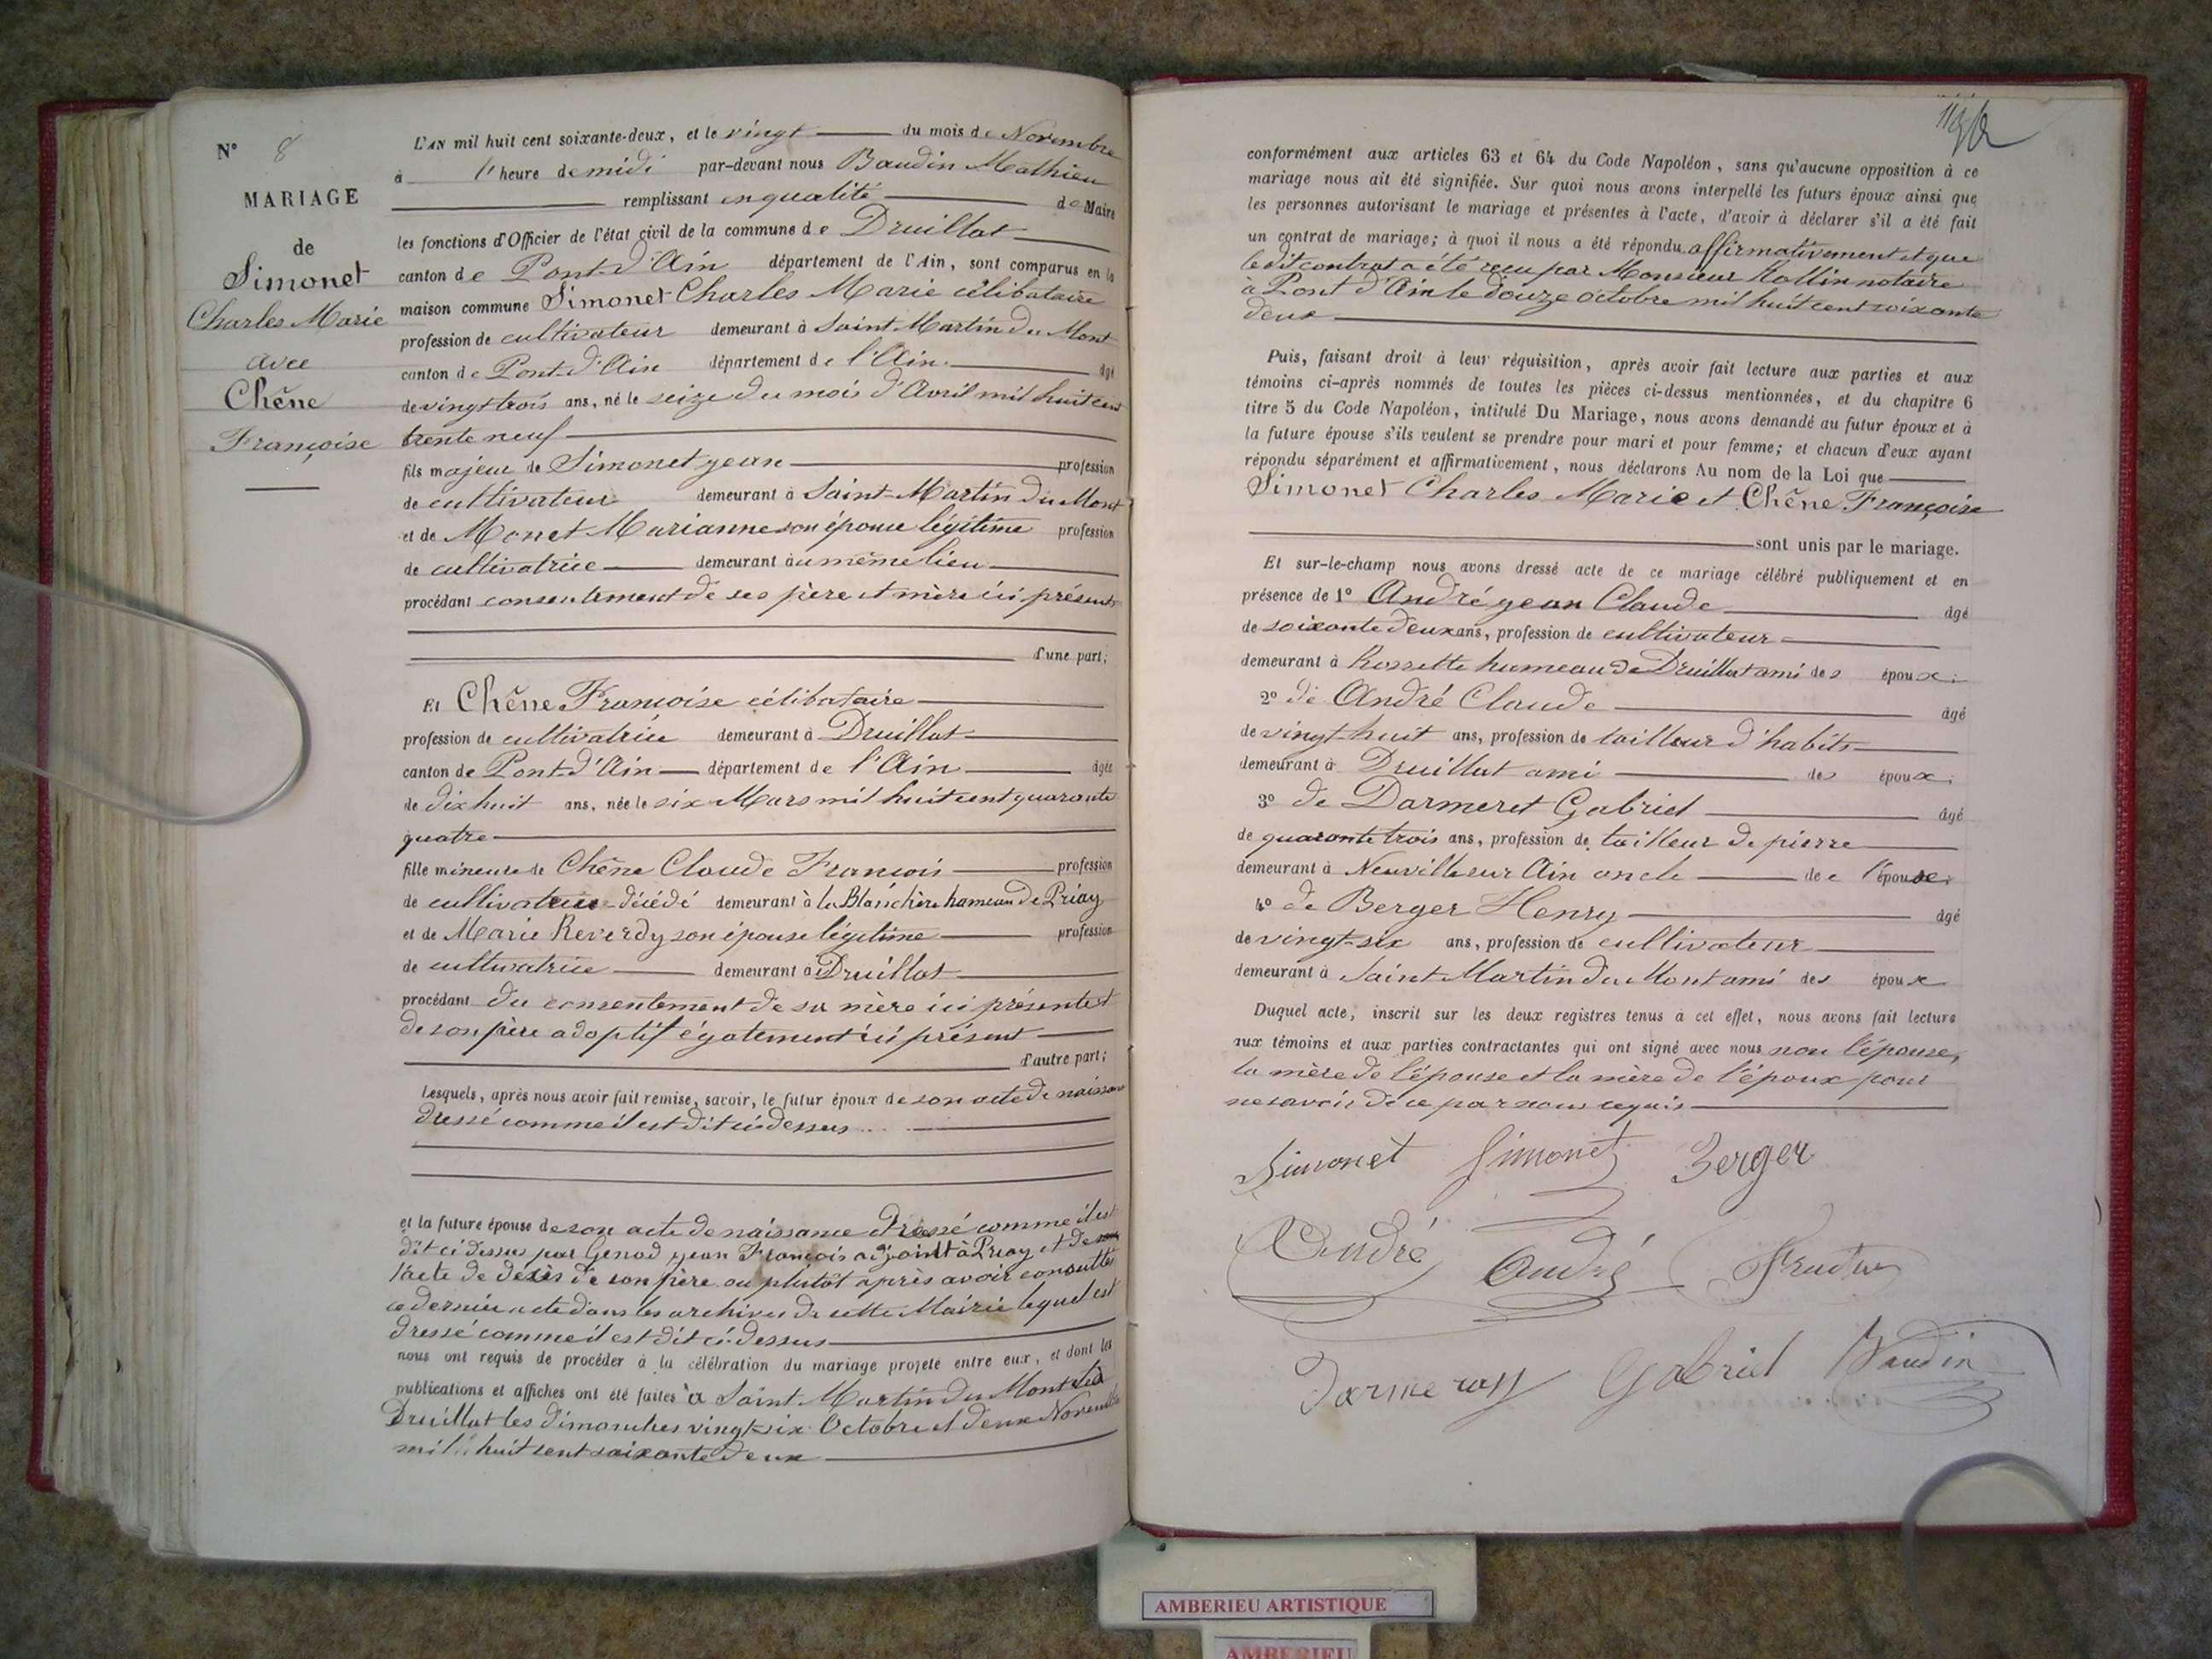 N° 8
MARIAGE
de
Simonet
Charles Marie
avec
Chêne
Françoise
L'AN mil huit cent soixante-deux, et le vingt du mois de Novembre
à l'heure de midi par-devant nous Baudin Mathieu
remplissant en qualité de Maire
les fonctions d'Officier de l'état civil de la commune de Druillat
canton de Pont-d'Ain département de l'Ain, sont comparus en la
maison commune Simonet Charles Marie célibataire
profession de cultivateur demeurant à Saint-Martin du Mont
canton de Pont-d'Ain département de l'Ain âgé
de vingt trois ans, né le seize du mois d'Avril mil huit cent
trente neuf
fils majeur de Simonet jean profession
de cultivateur demeurant à Saint-Martin du Mont
et de Monet Marianne son épouse légitime profession
de cultivatrice demeurant au même lieu
procédant consentement de ses père et mère ici présents
d'une part;
Et Chêne Françoise célibataire
profession de cultivatrice demeurant à Druillat
canton de Pont-d'Ain département de l'Ain âgée
de dix huit ans, née le six Mars mil huit cent quarante
quatre
fille mineure de Chêne Claude François profession
de cultivateur décédé demeurant à la Blanchère hameau de Priay
et de Marie Reverdy son épouse légitime profession
de cultivatrice demeurant à Druillat
procédant du consentement de sa mère ici présente et
de son père adoptif également ici présent
d'autre part;
Lesquels, après nous avoir fait remise, savoir, le futur époux de son acte de naissance
dressé comme il est dit ci-dessus
et la future épouse de son acte de naissance dressé comme il est
dit ci dessus par Genod jean François adjoint à Priay et de
l'acte de décès de son père ou plutôt après avoir consulté
ce dernier acte dans les archives de cette Mairie lequel est
dressé comme il est dit ci-dessus
nous ont requis de procéder à la célébration du mariage projeté entre eux, et dont les
publications et affiches ont été faites à Saint-Martin du Mont et à
Druillat les dimanches vingt-six Octobre et deux Novembre
mil huit cent soixante deux
conformément aux articles 63 et 64 du Code Napoléon, sans qu'aucune opposition à ce
mariage nous ait été signifiée. Sur quoi nous avons interpellé les futurs époux ainsi que
les personnes autorisant le mariage et présentes à l'acte, d'avoir à déclarer s'il a été fait
un contrat de mariage; à quoi il nous a été répondu affirmativement et que
ledit contrat a été reçu par Monsieur Rollin notaire
à Pont d'Ain le douze octobre mil huit cent soixante
deux
Puis, faisant droit à leur réquisition, après avoir fait lecture aux parties et aux
témoins ci-après nommés de toutes les pièces ci-dessus mentionnées, et du chapitre 6
titre 5 du Code Napoléon, intitulé Du Mariage, nous avons demandé au futur époux et à
la future épouse s'ils veulent se prendre pour mari et pour femme; et chacun d'eux ayant
répondu séparément et affirmativement, nous déclarons Au nom de la Loi que
Simonet Charles Marie et Chêne Françoise
sont unis par le mariage.
Et sur-le-champ nous avons dressé acte de ce mariage célébré publiquement et en
présence de 1° André jean Claude âgé
de soixante deux ans, profession de cultivateur
demeurant à Rossette hameau de Druillat ami des époux;
2° de André Claude âgé
de vingt-huit ans, profession de tailleur d'habits
demeurant à Druillat ami des époux;
3° de Darmeret Gabriel âgé
de quarante trois ans, profession de tailleur de pierre
demeurant à Neuville sur Ain oncle de l'épouse;
4° de Berger Henry âgé
de vingt-six ans, profession de cultivateur
demeurant à Saint Martin du Mont ami des époux
Duquel acte, inscrit sur les deux registres tenus à cet effet, nous avons fait lecture
aux témoins et aux parties contractantes qui ont signé avec nous non l'épouse,
la mère de l'épouse et la mère de l'époux pour
ne savoir de ce par nous requis
Simonet Simonet Berger
André André
Gabriel Baudin
AMBERIEU ARTISTIQUE
AMBERIEU